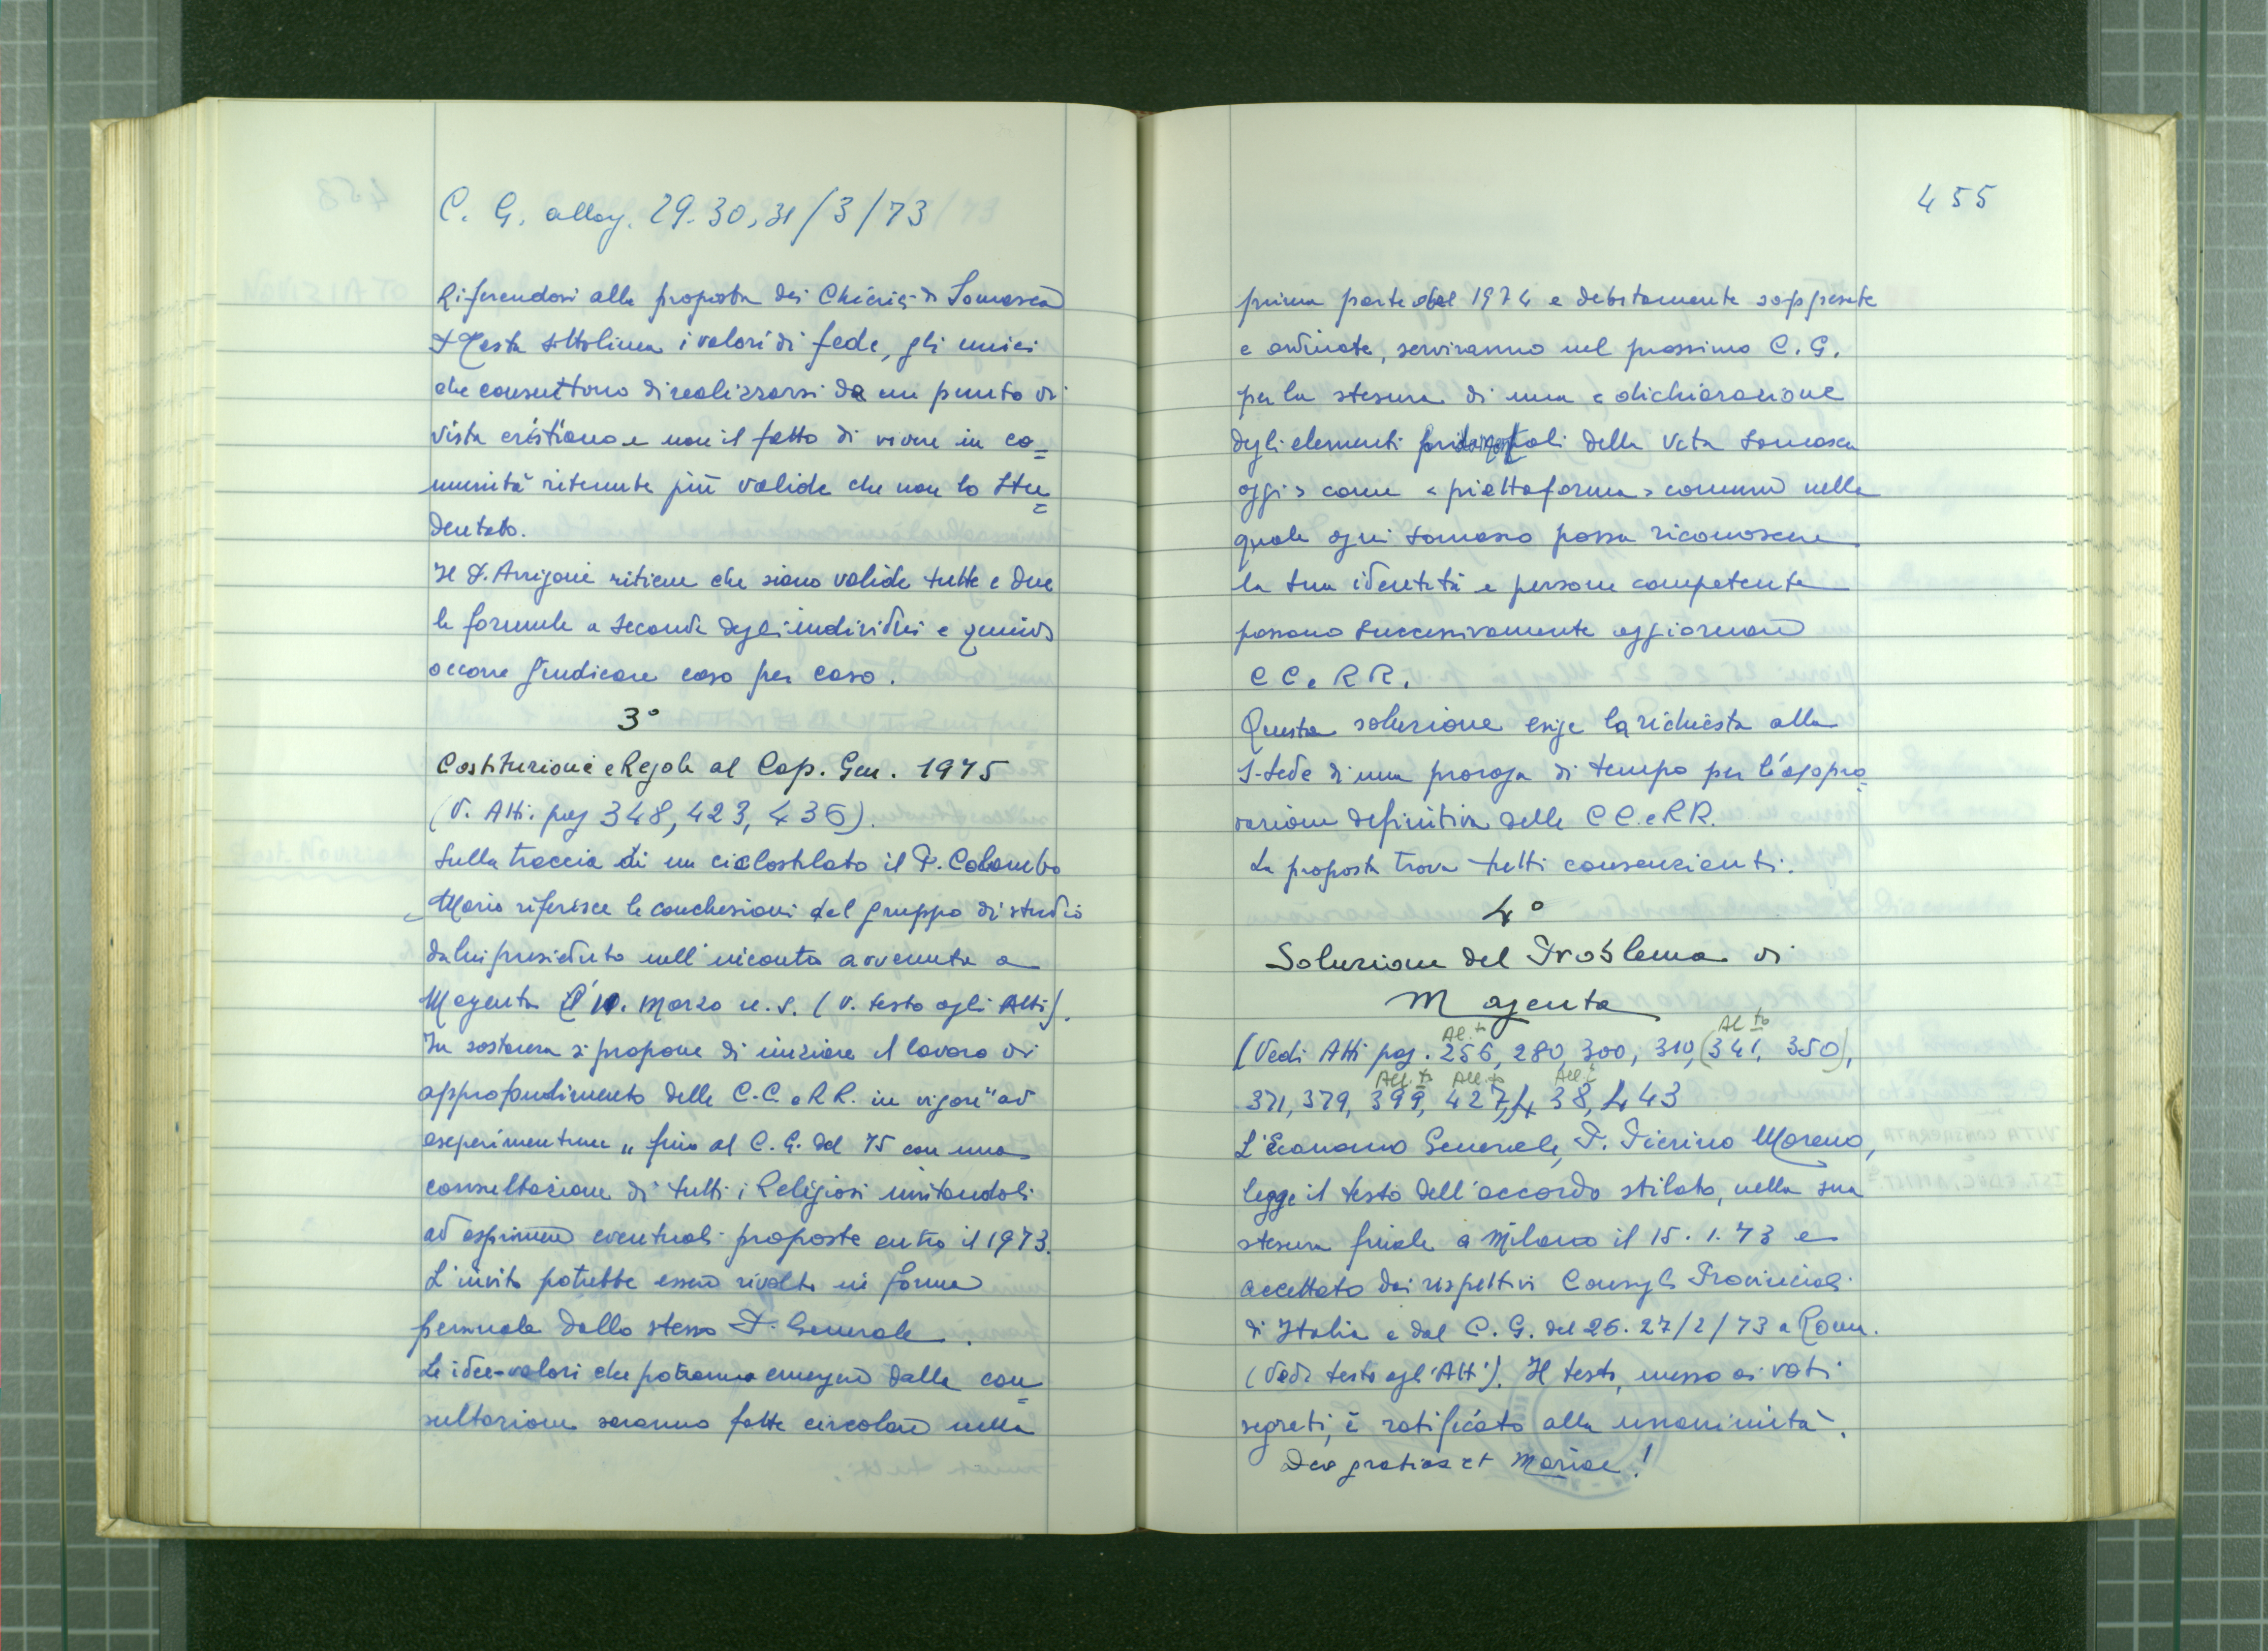 C. G. allarg. 29. 30, 31/3/73
Riferendosi alla proposta dei Chierici di Somasca
P. Testa sottolinea i valori di fede, gli unici
che consentono di realizzarsi da un punto di
vista cristiano e non il fatto di vivere in co=
munità ritenute più valide che non lo Stu=
dentato.
Il P. Arrigoni ritiene che siano valide tutte e due
le formule a seconda degli individui e quindi
occorre giudicare caso per caso.
3°
Costituzioni e Regole al Cap. Gen. 1975
(V. Atti. pag 348, 423, 436).
Sulla traccia di un ciclostilato il P. Colombo
Mario riferisce le conclusioni del gruppo di studio
da lui presieduto nell'incontro avvenuto a
Magenta il 10. Marzo u. s. (V. testo agli Atti).
In sostanza si propone di iniziare il lavoro di
approfondimento delle C.C. e R R. in vigore "ad
esperimentum" fino al C. G. del 75 con una
consultazione di tutti i Religiosi invitandoli
ad esprimere eventuali proposte entro il 1973.
L'invito potrebbe essere rivolto in forma
personale dallo stesso P. Generale.
Le idee-valori che potranno emergere dalla con=
sultazione saranno fatte circolare nella
455
prima parte del 1974 e debitamente soppesate
e ordinate, serviranno nel prossimo C. G.
per la stesura di una « dichiarazione
degli elementi della Vita Somasca
oggi » come « piattaforma » comune nella
quale ogni Somasco possa riconoscere
la sua identità e persone competente
possano successivamente aggiornare
C C. e R R.
Questa soluzione esige la richiesta alla
S. Sede di una proroga di tempo per l'appro=
vazione definitiva delle C C. e R R.
La proposta trova tutti consenzienti.
4°
Soluzione del Problema di
Magenta
Al.to Al.to
(Vedi Atti pag. 256, 280, 300, 310, (341, 350),
All.to All.to All.to
371, 379, 399, 427, 438, 443
L'Economo Generale, P. Pierino Moreno,
legge il testo dell'accordo stilato, nella sua
stesura finale a Milano il 15. 1. 73 e
accettato dai rispettivi Consigli Provinciali
di Italia e dal C. G. del 26. 27/2/73 a Roma.
(Vedi testo agli Atti). Il testo, messo ai voti
segreti, è ratificato alla unanimità.
Deo gratias et Mariae!